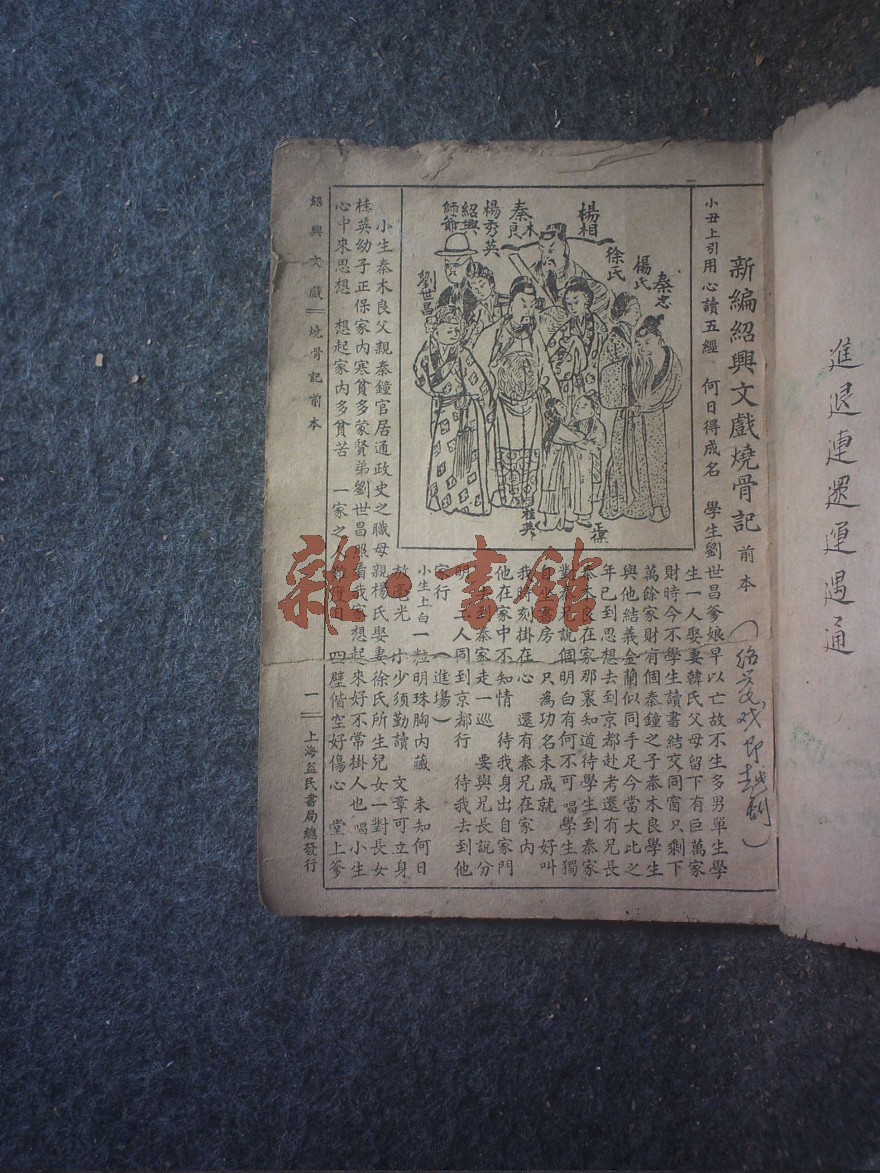 進退連還運遇通
新編紹興文戲燒骨記 前本
(紹興戏即越剧)
小丑上引用心讀五經 何日得成名 學生劉世昌爹娘早以亡故不生多男單生學
生一人娶妻韓氏父母留下有巨萬家
財時今不學生讀書結交同窗只剩下
萬餘家財有個秦鐘之子秦木良學生
與他結義金蘭似同手足今當大比之
年已到思想去到京都赴考還有兄長
秦木良在家那裏知道待學生到秦家
對秦兄說個明白有何不可 唱學生獨
書房 只為功名未成就 好叫
我時刻掛在心 還有秦兄在家內
他在家中不知情 待我身出自家門
生到秦家走一巡 要與兄長說分
明 二人同到京都行 待我去到他
家行 (進場)
小生上白一粒明珠胸內藏 未知何日
放光 少少須勤讀 文章可立身
小生秦木良父親秦鐘官居通政史之職母親楊氏娶妻徐氏所生兒女一對長女
桂英幼子正保家內寒貧多蒙賢弟劉世昌照看我家想起來好不常掛人也 唱小生
心中來思想 想起家內多貧苦 一家之人難度日 四壁偕空好傷心 堂上爹
楊相
徐氏
楊氏
秦忠
秦木良
楊秀英
紹興師爺
劉世昌
桂英
正保
紹興文戲 燒骨記前本
一 上海益民書局總發行
雜·書館